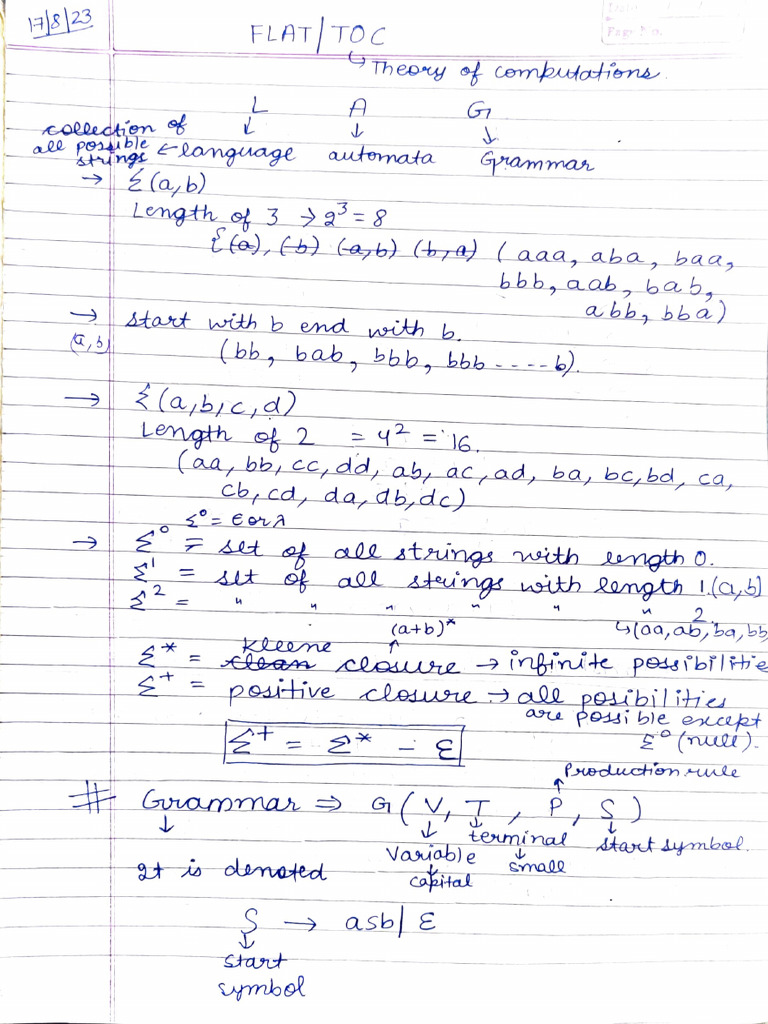 17/8/23
FLAT/TOC
↳ Theory of computations.
L A G
↓ ↓ ↓
collection of
all possible
strings ← language automata Grammar
→ Σ(a,b)
Length of 3 → 2³ = 8
{(a), (b) (a,b) (b,a) (aaa, aba, baa,
bbb, aab, bab,
abb, bba)
→ start with b end with b.
(a,b) (bb, bab, bbb, bbb ---- b).
→ Σ(a,b,c,d)
Length of 2 = 4² = 16.
(aa, bb, cc, dd, ab, ac, ad, ba, bc, bd, ca,
cb, cd, da, db, dc)
Σ⁰ = ϵ or λ
→ Σ⁰ = set of all strings with length 0.
Σ¹ = set of all strings with length 1.(a,b)
Σ² = " " " " " " 2.
(a+b)* ↳(aa,ab,ba,bb
↑
kleene
Σ* = clean closure → infinite possibilitie
Σ⁺ = positive closure → all posibilities
are possible except
Σ⁰ (null).
Σ⁺ = Σ* - ε
Production rule
↑
# Grammar ⇒ G(V, T, P, S)
↓ ↓ ↓ ↓
terminal start symbol.
Variable ↓ small
↓
capital
It is denoted
S → asb| ε
↓
start
symbol